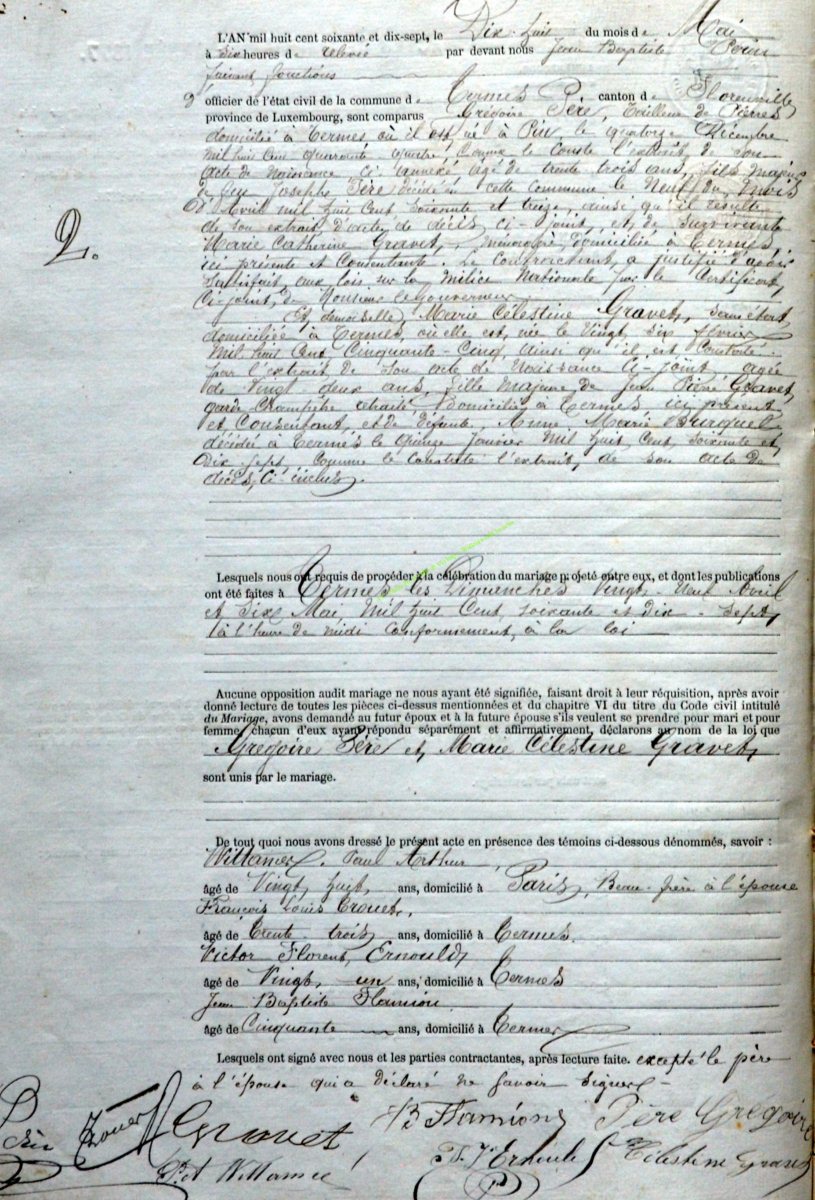 L'AN mil huit cent soixante et dix-sept, le Dix-huit du mois de Mai
à six heures de relevée par devant nous Jean Baptiste
faisant fonctions
d'officier de l'état civil de la commune de Termes canton de Florenville
province de Luxembourg, sont comparus Grégoire Père, Tailleur de Pierres
domicilié à Termes où il est né à Pin, le quatorze Décembre
mil huit cent quarante-quatre, comme le conste l'extrait de son
acte de naissance ci-annexé âgé de trente trois ans, fils majeur
de feu Josephe Père décédé en cette commune le Neuf du mois
D'Avril mil huit cent soixante et treize, ainsi qu'il résulte
de son extrait d'acte de décès ci-joint, et de survivante
Marie Catherine Gravet, ménagère domiciliée à Termes,
ici présente et Consentante. Le contractant, a justifié d'avoir
satisfait, aux lois sur la Milice Nationale par le Certificat,
Ci-joint, de Monsieur le gouverneur
Et, demoiselle, Marie Célestine Gravet, sans état,
domiciliée à Termes, où elle est, née le Vingt six février
mil huit Cent Cinquante-Cinq ainsi qu'il est Constaté
par l'extrait de son acte de naissance Ci-joint, agée
de Vingt-deux ans, fille majeure de Jean Pierre Gravet,
garde Champêtre retraité, Domicilié à Termes ici présent
et Consentant, et de défunte, Anne Marie
décédée à Termes le quinze janvier mil huit, Cent, soixante et,
Dix sept, comme le constate l'extrait, de son acte de
décès, Ci-inclus.
2.
Lesquels nous ont requis de procéder à la célébration du mariage projeté entre eux, et dont les publications
ont été faites à Termes les Dimanches Vingt-Neuf Avril
et Six Mai Mil huit Cent, soixante et dix-sept,
à l'heure de midi conformement, à la loi
Aucune opposition audit mariage ne nous ayant été signifiée, faisant droit à leur réquisition, après avoir
donné lecture de toutes les pièces ci-dessus mentionnées et du chapitre VI du titre du Code civil intitulé
du Mariage, avons demandé au futur époux et à la future épouse s'ils veulent se prendre pour mari et pour
femme, chacun d'eux ayant répondu séparément et affirmativement, déclarons au nom de la loi que
Grégoire Père et, Marie Célestine Gravet,
sont unis par le mariage.
De tout quoi nous avons dressé le présent acte en présence des témoins ci-dessous dénommés, savoir :
Wittamer, Paul Arthur,
âgé de Vingt, huit, ans, domicilié à Paris, Beau-frère à l'épouse
François Louis Crouet,
âgé de Trente-trois ans, domicilié à Termes.
Victor Florent, Ernould,
âgé de Vingt, un ans, domicilié à Termes
Jean Baptiste Flamion
âgé de Cinquante ans, domicilié à Termes
Lesquels ont signé avec nous et les parties contractantes, après lecture faite. excepté le père
à l'épouse qui a déclaré ne savoir signer
Père Grégoire
Célestine Gravet